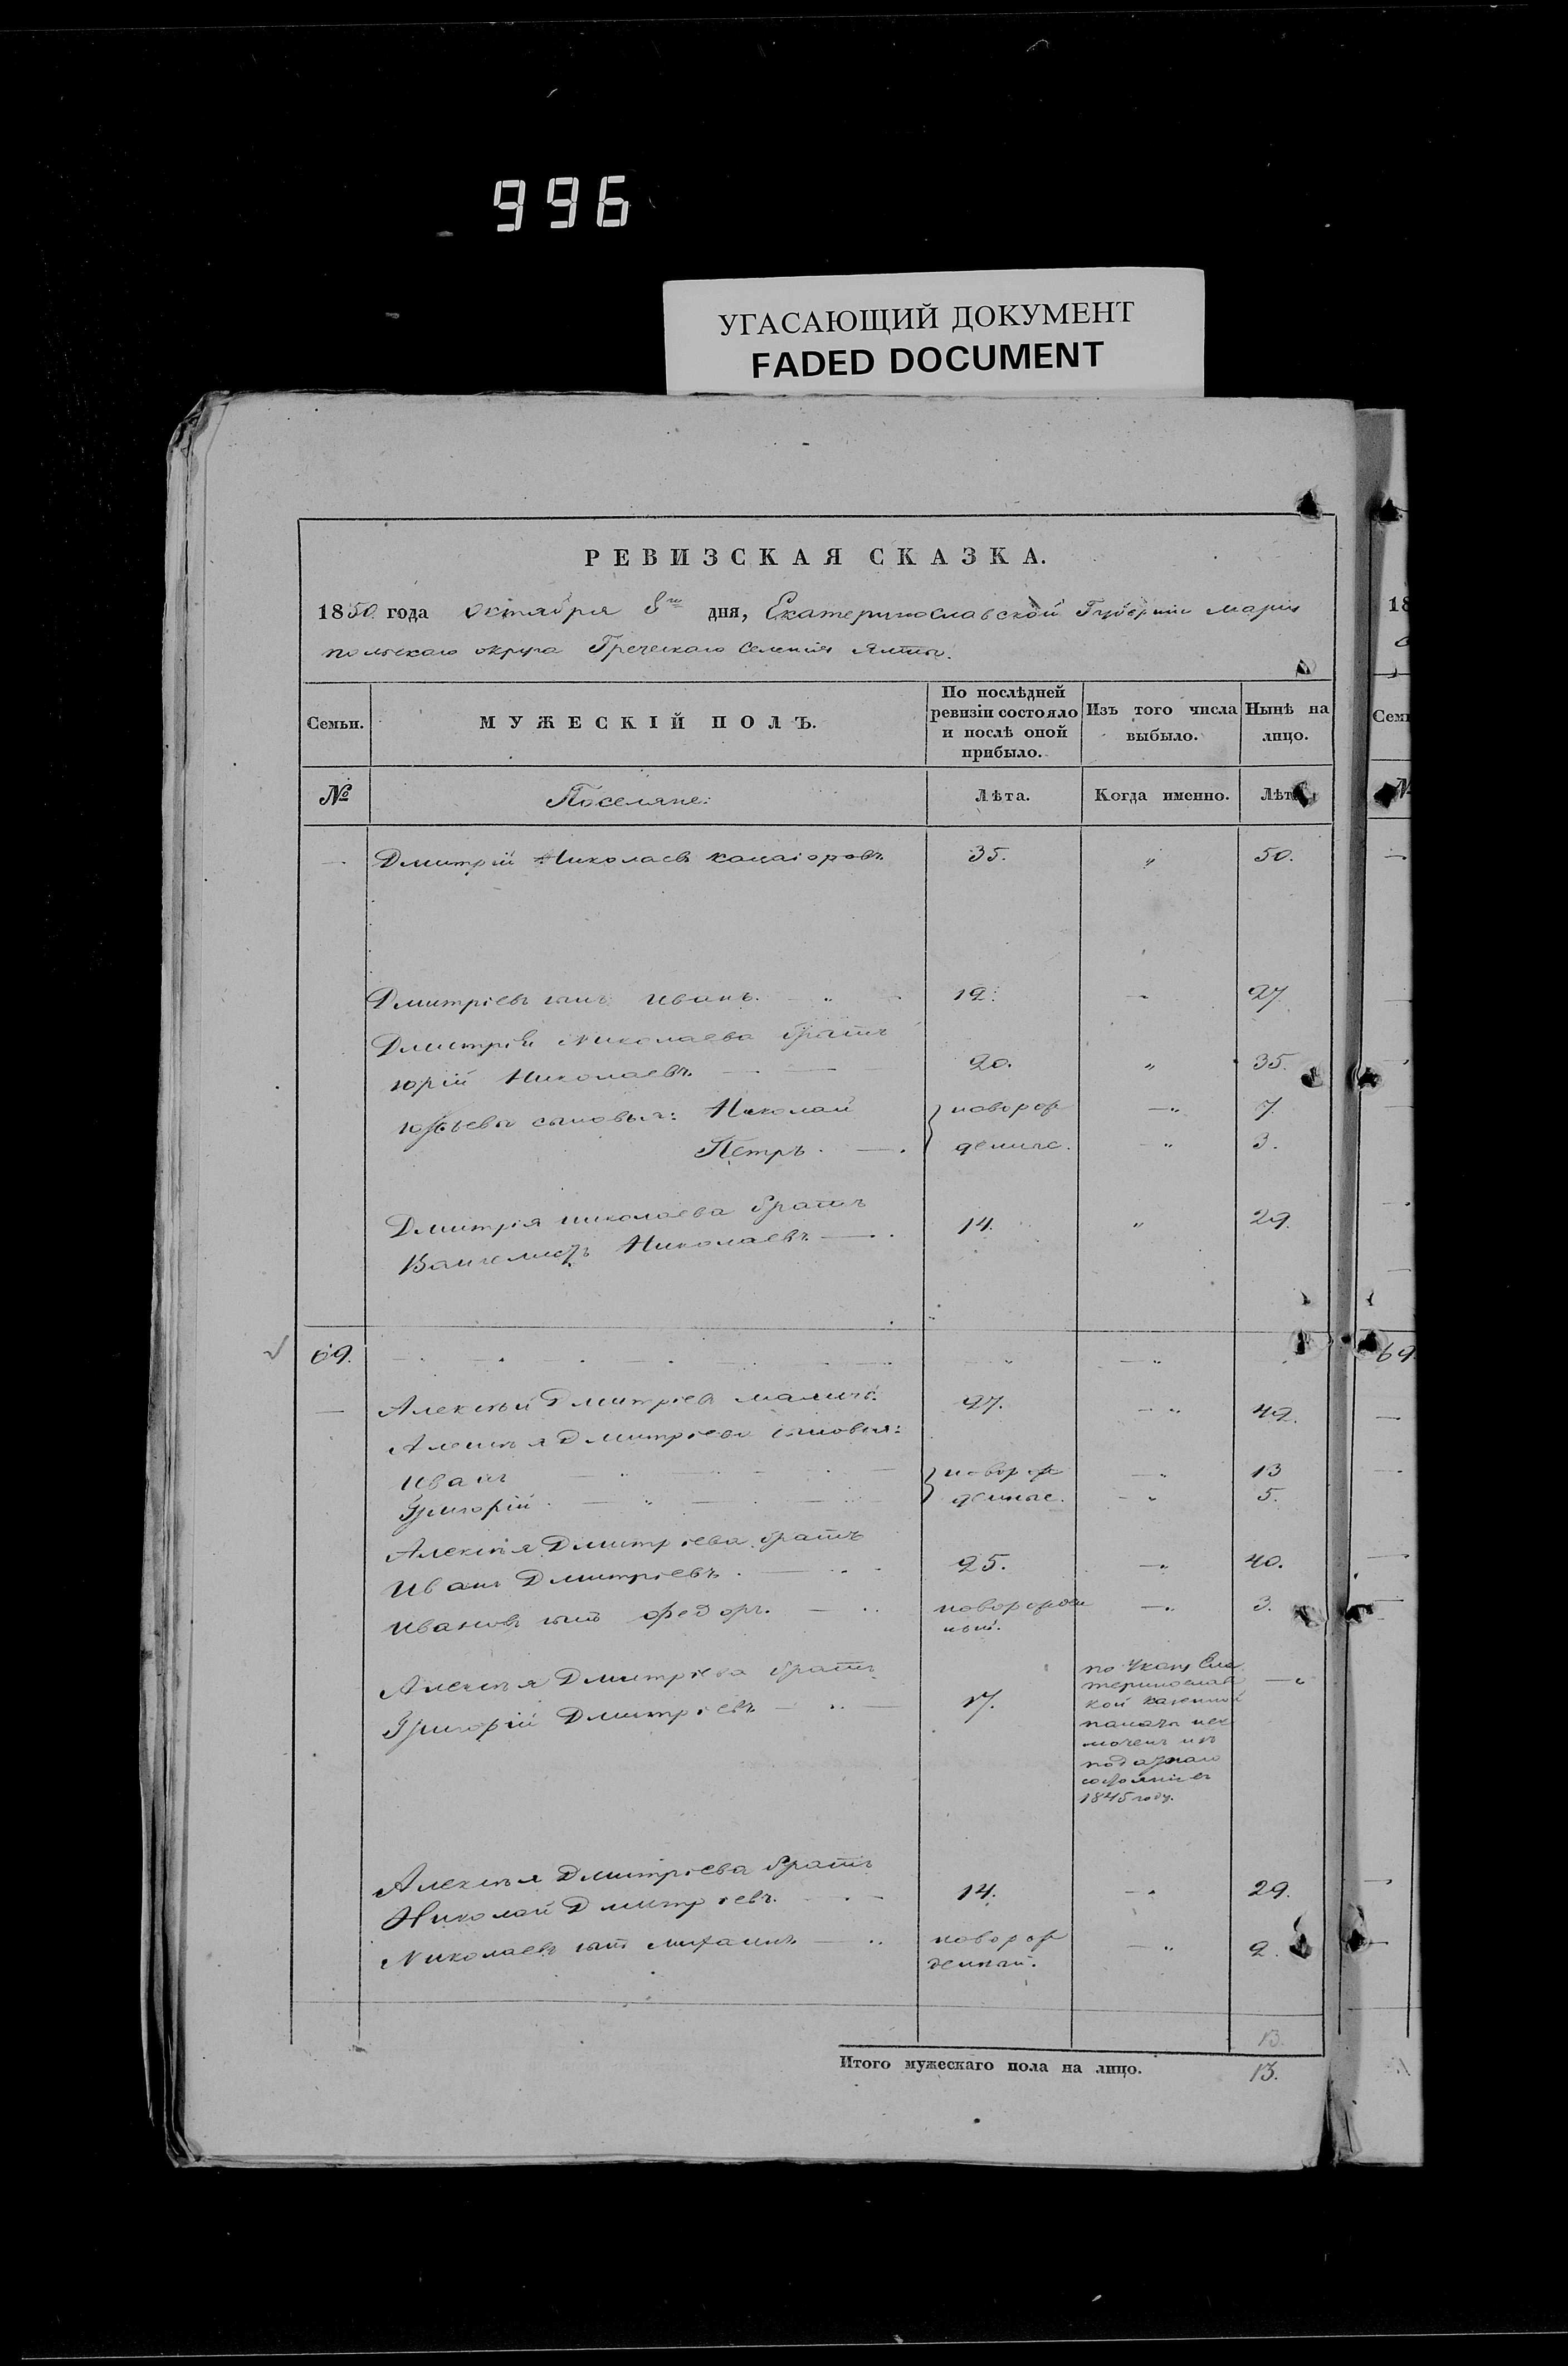 996
УГАСАЮЩИЙ ДОКУМЕНТ
FADED DOCUMENT
РЕВИЗСКАЯ СКАЗКА.
1850 года Октября 8го дня, Екатеринославской Губерніи Маріу
польскаго округа Греческаго Селенія Ялты.
Семьи. МУЖЕСКІЙ ПОЛЪ. По послѣдней ревизіи состояло и послѣ оной прибыло. Изъ того числа выбыло. Нынѣ на лицо.
№ Поселяне: Лѣта. Когда именно. Лѣта
— Дмитрій Николаевъ 35. „ 50.
Дмитріевъ сынъ Иванъ. 12. — 27
Дмитрія Николаева братъ
Юрій Николаевъ. 20. „ 35.
Юрьевы сыновья: Николай новорож — „ 7.
Петръ. денные. — „ 3.
Дмитрія Николаева братъ
Николаевъ 14. „ 29.
69. — „
— Алексѣй Дмитріевъ 27. — „ 42.
Алексѣя Дмитріева сыновья:
Иванъ новорож — „ 13
Григорій. денные. — „ 5.
Алексѣя Дмитріева братъ
Иванъ Дмитріевъ. 25. — „ 40.
Ивановъ сынъ Федоръ. новорожден — „ 3.
ный.
Алексѣя Дмитріева братъ
Григорій Дмитріевъ 17. — „
по Указу Ека
теринослав
кой казенной
палаты иск
люченъ изъ
податнаго
состоянія въ
1845 году.
Алексѣя Дмитріева братъ
Николай Дмитріевъ. 14. — „ 29.
Николаевъ сынъ Михаилъ новорож — „ 2.
денный.
13.
Итого мужескаго пола на лицо. 13.
18
Семь
№
69.